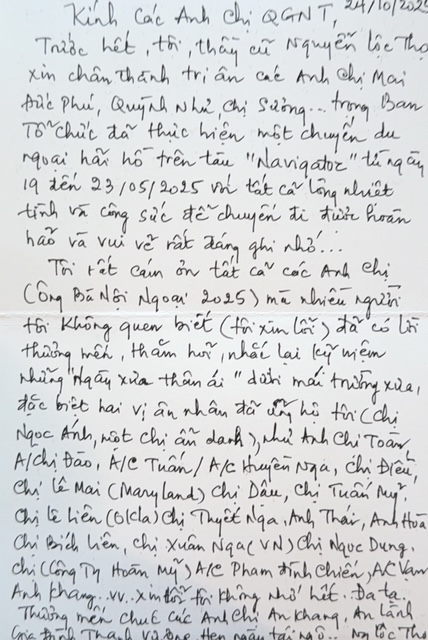 Kính Các Anh Chị QGNT, 24/10/2025
Trước hết, tôi, thầy cũ Nguyễn Lộc Thọ
xin chân thành tri ân các Anh Chị Mai
Đức Phú, Quỳnh Như, Chị Sương... trong Ban
Tổ chức đã thực hiện một chuyến du
ngoạn hải hồ trên tàu "Navigator" từ ngày
19 đến 23/05/2025 với tất cả lòng nhiệt
tình và công sức để chuyến đi được hoàn
hảo và vui vẻ rất đáng ghi nhớ...
Tôi rất cám ơn tất cả các Anh Chị
(Ông Bà Nội Ngoại 2025) mà nhiều người
tôi không quen biết (tôi xin lỗi) đã có lời
thương mến, thăm hỏi, nhắc lại kỷ niệm
những "Ngày xưa thân ái" dưới mái trường xưa,
đặc biệt hai vị ân nhân đã ủng hộ tôi (Chị
Ngọc Ánh, một chị ẩn danh), như Anh Chị Toàn
A/Chị Đào, A/C Tuấn/A/C Huyền Nga, Chị Diệu,
Chị Lê Mai (Maryland) Chị Dâu, Chị Tuấn Mỹ.
Chị Lê Liên (Okla) Chị Thuyết Nga, Anh Thái, Anh Hoà
Chị Bích Liên, chị Xuân Nga (VN) Chị Ngọc Dung.
chị (Công Ty Hoàn Mỹ) A/C Phạm Đình Chiến, A/C Vạn
Anh Khang. vv. xin lỗi tôi không nhớ hết. Đa tạ.
Thương mến chúc các Anh Chị An Khang, An lành
Gia đình Hẹn ngày tái ngộ... Ng Lộc Thọ